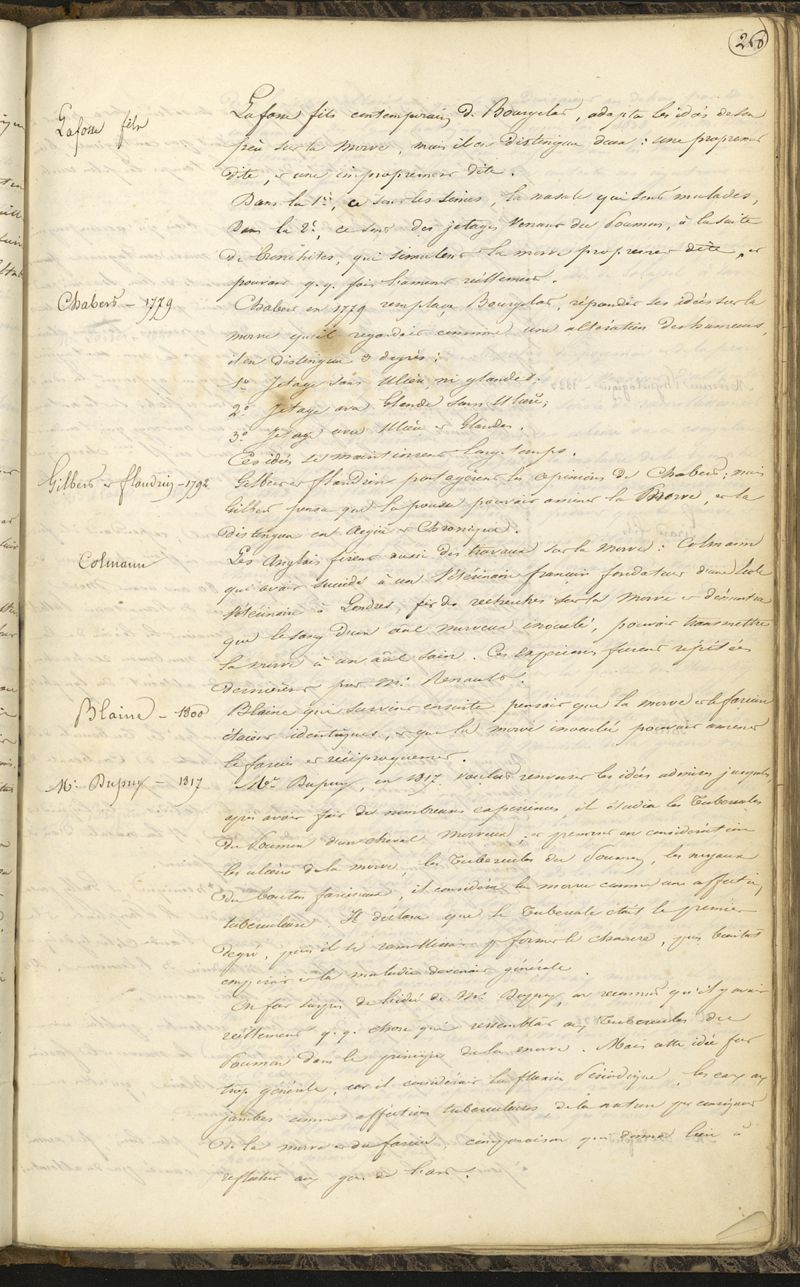 26
Lafosse fils
Lafosse fils contemporain de Bourgelat, adopta les idées de son
père sur la morve, mais il en distingua deux : une proprement
dite, et une improprement dite.
Dans la 1re, ce sont les sinus, la nasale qui sont malades,
Dans la 2e, ce sont des jetages venant du Poumon, à la suite
de bronchites, qui simulent la morve proprement dite, et
pouvant q.q. fois l'amener réellement.
Chabert – 1779
Chabert en 1779 remplaça Bourgelat, répandit ses idées sur la
morve qu'il regardait comme une altération des humeurs,
il en distingua 3 degrés :
1o Jetage sans Ulcère, ni glandes;
2o Jetage avec Glande sans Ulcère;
3o Jetage avec Ulcère et Glandes.
Ces idées se maintinrent longtemps.
Gilbert et flandrin – 1792
Gilbert et flandrin partagèrent les opinions de Chabert; mais
Gilbert pensa que la pousse pouvait amener la Morve, et la
distingua en Aigue et Chronique.
Colmann
Les Anglais firent aussi des travaux sur la morve : Colmann
qui avait succédé à un Vétérinaire francais fondateur d'une Ecole
Vétérinaire à Londres, fit des recherches sur la morve et démontra
que le sang d'un aal morveux inoculé, pouvait transmettre
la morve à un aal sain. Ces Expériences furent répétées
dernièrement par Mr Renault.
Blaine – 1800
Blaine qui survint ensuite pensait que la morve et le farcin
étaient identiques, et que la morve inoculée pouvait amener
le farcin et réciproquement.
Mr Dupuy – 1817
Mr Dupuy, en 1817 voulut renverser les idées admises jusqu'alors
après avoir fait de nombreuses expériences, il étudia les Tubercules
du Poumon d'un cheval Morveux, et prenant en considération
les ulcères de la morve, les Tubercules du Poumon, les noyaux
du bouton farcineux, il considéra la morve comme une affection
tuberculeuse. Il déclara que le Tubercule était le premier
degré, puis il se ramollissait pr former le chancre, puis
empirait et la maladie devenait générale.
On fut surpris de l'idée de Mr Dupuy, on reconnut qu'il y avait
réellement q.q. chose qui ressemblait aux Tubercules du
Poumon dans le principe de la morve. Mais cette idée fut
trop générale, car il considérait la fluxion Périodique, les eaux aux
jambes comme affections tuberculeuses de la nature par conséquent
de la morve et du farcin, comparaison qui donna lieu à
réflexion aux gens de l'art.